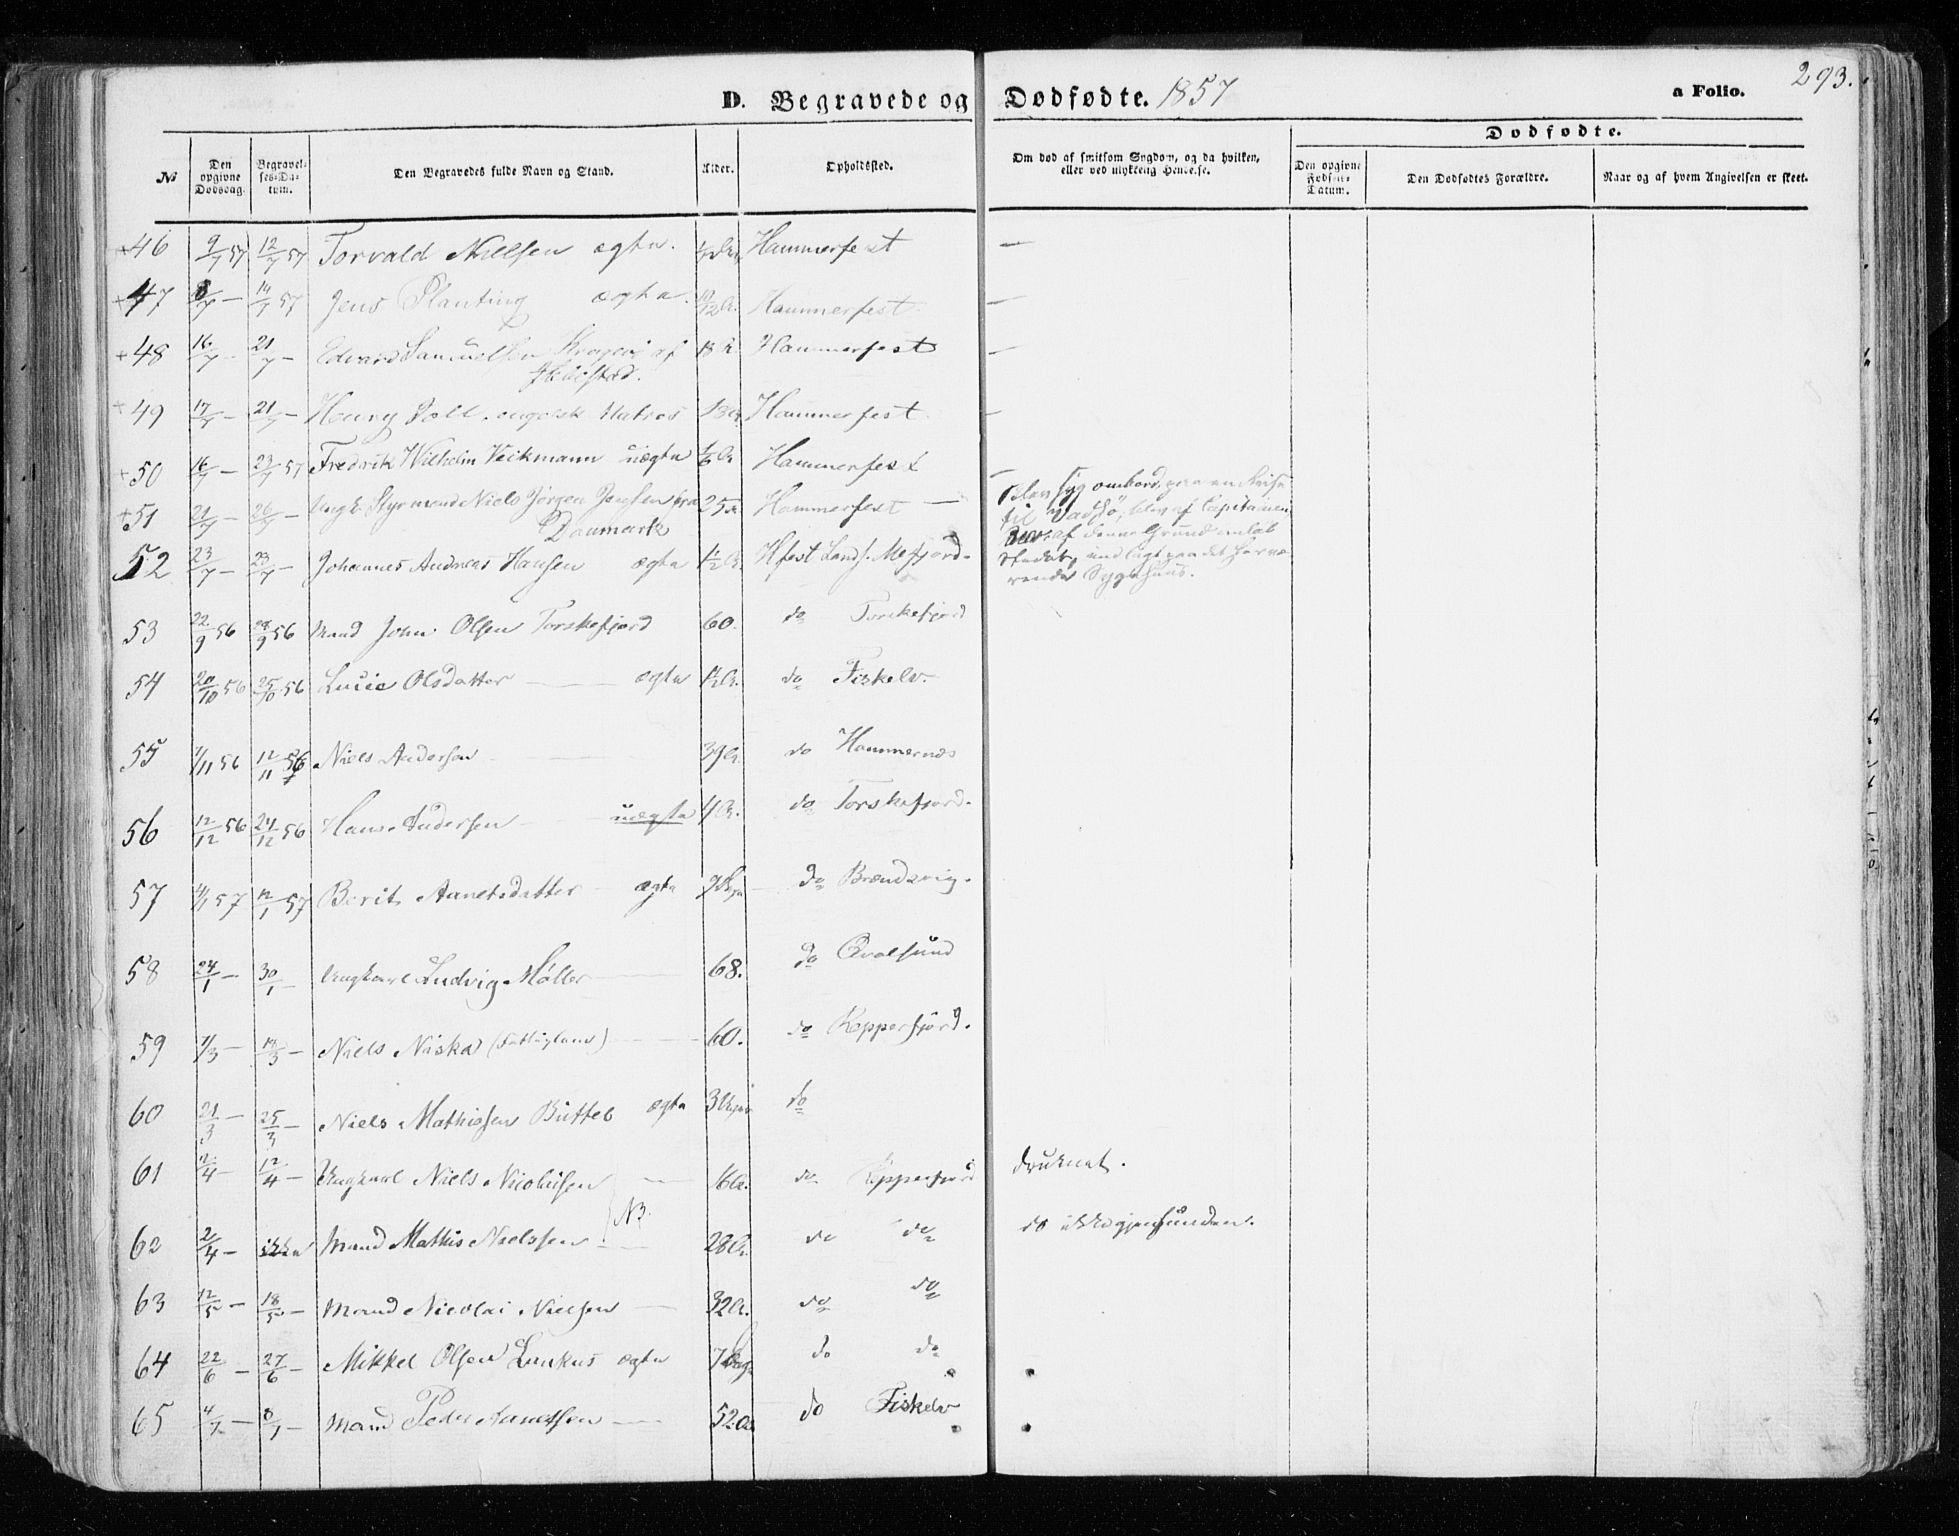 D. Begravede og Dødfødte. 1857 a Folio. 293.
Dødfødte.
№ Den opgivne Dødsdag. Begravelses-Datum. Den Begravedes fulde Navn og Stand. Alder. Opholdssted. Om død af smitsom Sygdom, og da hvilken, eller ved ulykkelig Hendelse. Den opgivne Fødsels-Datum. Den Dødfødtes Forældre. Naar og af hvem Angivelsen er skeet.
+46 9/7 57 12/7 57 Torvald Nielsen ægte. Hammerfest —
+47 8/7 — 14/7 57 Jens Planting ægte. 10/12 A. Hammerfest —
+48 16/7 — 21/7 — Edvard Samuelsen af 18 A. Hammerfest —
+49 17/7 — 21/7 — Henry engelsk Matros Hammerfest —
+50 16/7 — 23/7 57 Fredrik Wilhelm Veikmann uægte 1/6 A. Hammerfest —
+51 21/7 — 26/7 — Ungk. Styrmand Niels Jørgen Jensen fra 25 A. Hammerfest — Blev syg ombord paa en Reise
Danmark til Vadsø, blev af Capitainen
af denne Grund
52 23/7 — 23/7 — Johannes Andreas Hansen ægte 1/2 A. Hfest Lands. Mefjord. indlagt paa det herværende Sygehuus.
53 22/9 56 28/9 56 Mand John Olsen Torskefjord 60. do Torskefjord
54 20/10 56 25/10 56 Lucie Olsdatter — ægte 1/2 A. do Fiskelv.
55 1/11 56 12/11 56 Niels Andersen 39 A. do Hammernes
56 12/12 56 24/12 56 Hans Andersen — uægte 4 A. do Torskefjord.
57 4/1 57 12/1 57 Berit Aanetsdatter — ægte do Brændsvig.
58 24/1 — 30/1 — Ungkarl Ludvig Møller — 68. do Qvalsund
59 7/3 — 14/3 — Niels Niska (Fattiglem) — 60. do Repperfjord.
60 21/3 — 25/3 — Niels Mathissen Buttes ægte 3 do
61 2/4 — 12/4 — Ungkarl Niels Nicolaisen — 16 A. do Repperfjord druknet.
NB.
62 2/4 — ikke Mand Mathis Nielssen — 28 A. do do do ikke gjenfunden.
63 12/5 — 18/5 — Mand Nicolai Nielsen — 32 A. do do
64 22/6 — 27/6 — Mikkel Olsen Lunkus ægte 7 do do
65 4/7 — 8/7 — Mand Peder Aanetsen — 52 A. do Fiskelv